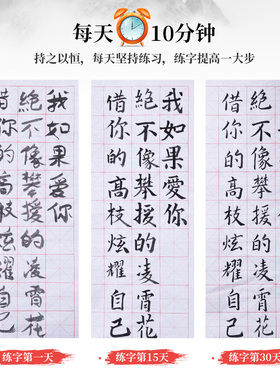 每天10分钟
持之以恒，每天坚持练习，练字提高一大步
我如果愛你
絕不像攀援的凌霄花
借你的高枝炫耀自己
我如果愛你
絕不像攀援的凌霄花
借你的髙枝炫耀自己
絕不像攀援的凌霄花
借你的髙枝炫耀自己
练字第一天
练字第15天
练字第30天